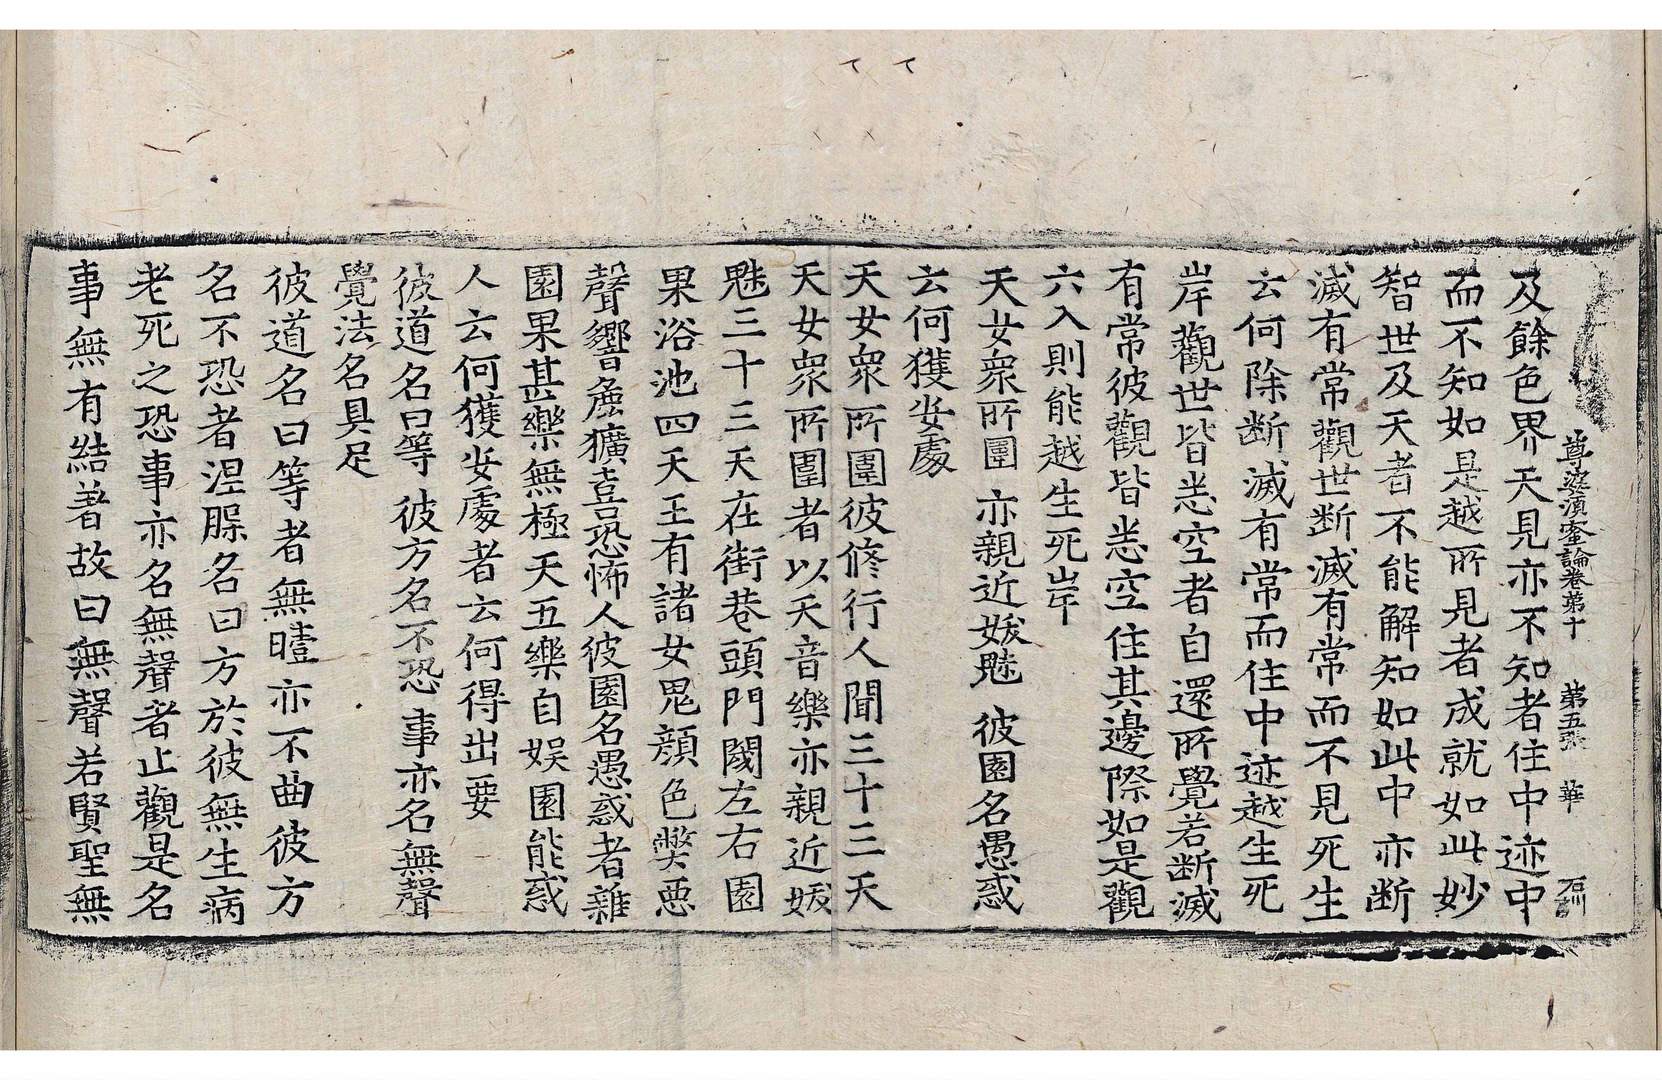 尊婆須蜜論卷第十 第五張 華
及餘色界天見亦不知者住中迹中
而不知如是越所見者成就如此妙
智世及天者不能解知如此中亦断
滅有常觀世断滅有常而不見死生
云何除断滅有常而住中迹越生死
岸觀世皆悉空者自還所覺若断滅
有常彼觀皆悉空住其邊際如是觀
六入則能越生死岸
天女衆所圍 亦親近媛魅 彼園名愚惑
云何獲安處
天女衆所圍彼修行人聞三十三天
天女衆所圍者以天音樂亦親近媛
魅三十三天在街巷頭門閾左右園
果浴池四天王有諸女鬼顔色弊惡
聲響麁獷喜恐怖人彼園名愚惑者雜
園果甚樂無極天五樂自娱園能惑
人云何獲安處者云何得出要
彼道名曰等 彼方名不恐 事亦名無聲
覺法名具足
彼道名曰等者無曀亦不曲彼方
名不恐者涅䏶名曰方於彼無生病
老死之恐事亦名無聲者止觀是名
事無有結著故曰無聲若賢聖無